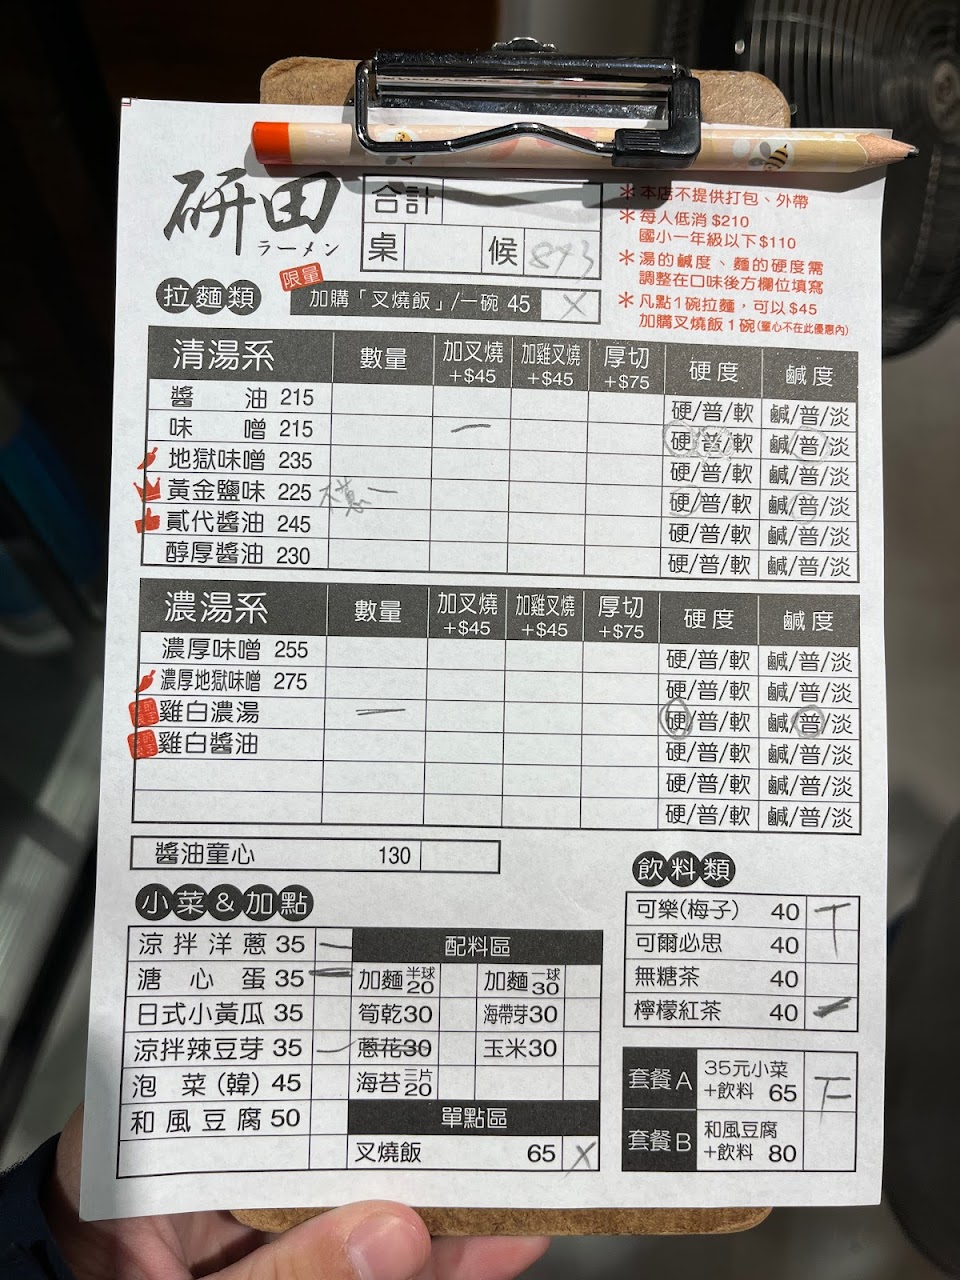 研田
ラーメン
合計
桌 候 843
＊本店不提供打包、外帶
＊每人低消 $210
國小一年級以下$110
＊湯的鹹度、麵的硬度需
調整在口味後方欄位填寫
＊凡點1碗拉麵，可以$45
加購叉燒飯1碗(童心不在此優惠內)
拉麵類
限量
加購「叉燒飯」/一碗 45 X
清湯系 數量 加叉燒+$45 加雞叉燒+$45 厚切+$75 硬度 鹹度
醬油 215 硬/普/軟 鹹/普/淡
味噌 215 一 硬/普/軟 鹹/普/淡
地獄味噌 235 硬/普/軟 鹹/普/淡
黃金鹽味 225 一 硬/普/軟 鹹/普/淡
貳代醬油 245 硬/普/軟 鹹/普/淡
醇厚醬油 230 硬/普/軟 鹹/普/淡
濃湯系 數量 加叉燒+$45 加雞叉燒+$45 厚切+$75 硬度 鹹度
濃厚味噌 255 硬/普/軟 鹹/普/淡
濃厚地獄味噌 275 硬/普/軟 鹹/普/淡
雞白濃湯 一 硬/普/軟 鹹/普/淡
雞白醬油 硬/普/軟 鹹/普/淡
硬/普/軟 鹹/普/淡
硬/普/軟 鹹/普/淡
醬油童心 130
小菜&加點
涼拌洋蔥 35 一
溏心蛋 35 一
日式小黃瓜 35
涼拌辣豆芽 35 一
泡菜(韓) 45
和風豆腐 50
配料區
加麵半球20 加麵一球30
筍乾30 海帶芽30
蔥花30 玉米30
海苔三片20
單點區
叉燒飯 65 X
飲料類
可樂(梅子) 40 丅
可爾必思 40
無糖茶 40
檸檬紅茶 40 一
套餐A 35元小菜+飲料 65 下
套餐B 和風豆腐+飲料 80